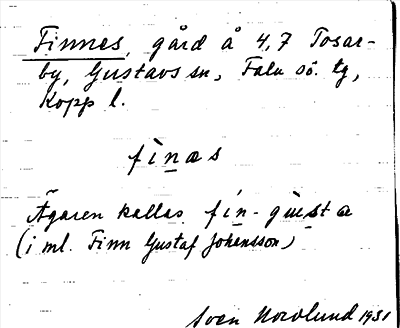 Finnes, gård å 4,7 Tosar-
by, Gustavs sn, Falu sö. tg,
Kopp l.
fìnas
Ägaren kallas fín-gùsta
(i ml. Finn Gustaf Johansson)
Sven Nordlund 1931